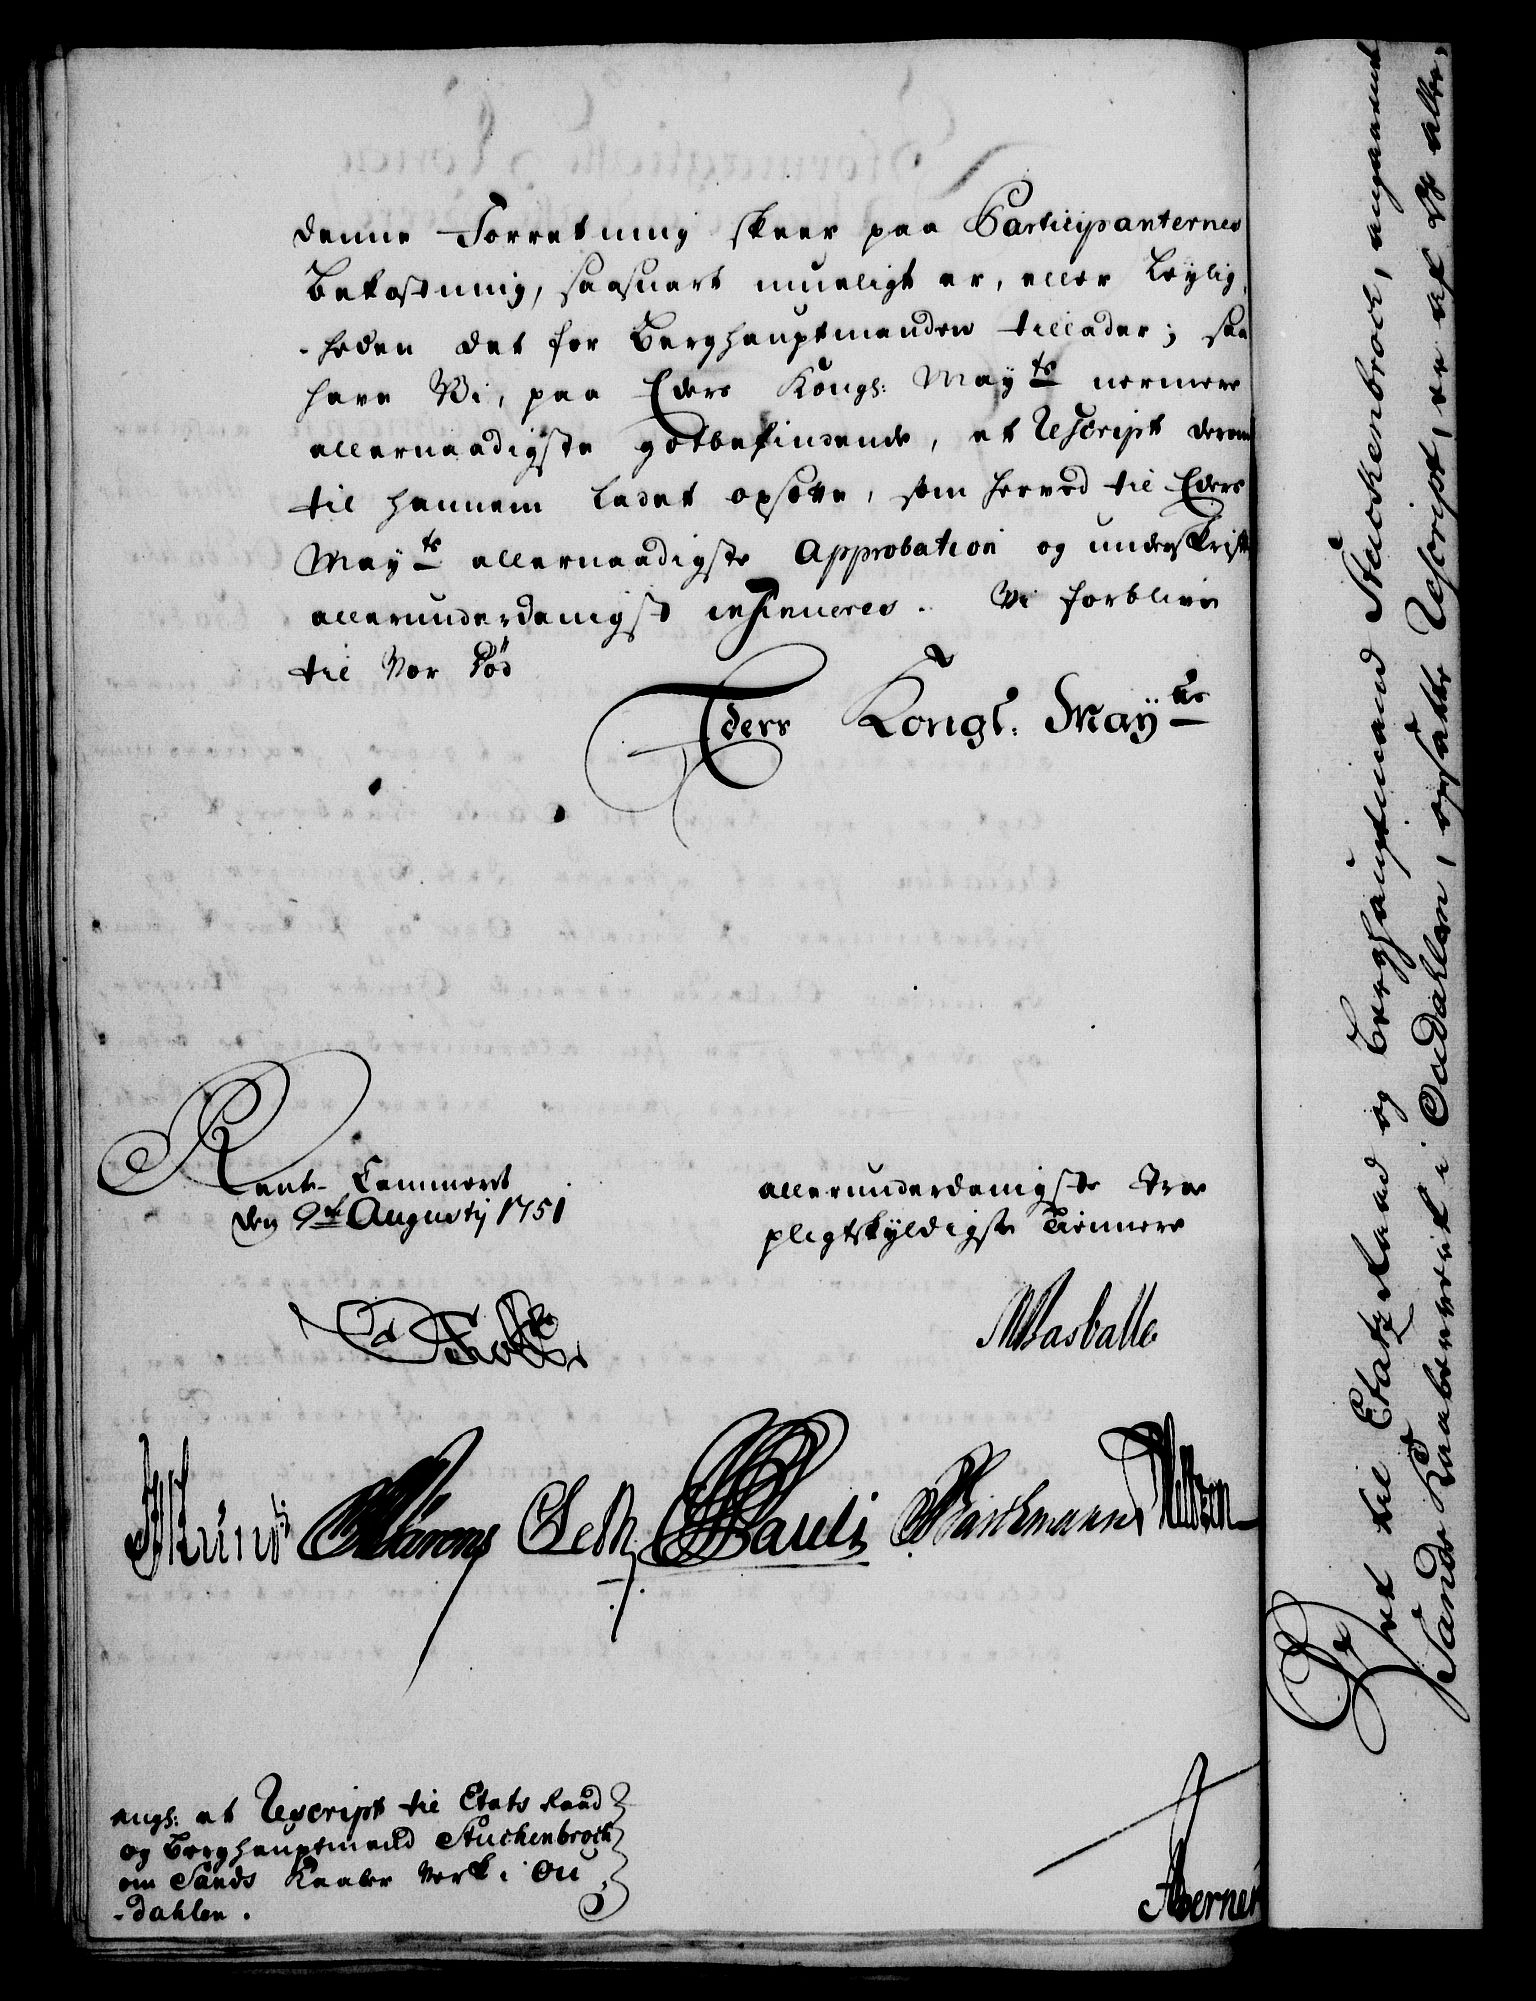 denne Forretning skeer paa Participanternes
Bekostning, saasnart mueligt er, eller Leylig,
-heden det for Berghauptmanden tillader; saa
have Vi, paa Eders Kongl: Mayts nermere
allernaadigste gotbefindende, et Rescript derom
til hannem ladet opsette, som herved til Eders
Mayts allernaadigste Approbation og underskrift
allerunderdanigst insinueres. Vi forblive
til Vor Död
Eders Kongl. Mayts
Rente-Cammeret
den 9de Augustij 1751
allerunderdanigste troe
pligtskyldigste Tiennere
Pauli
angl: et Rescript til Etats Raad
og Berghauptmand Stuckenbrock
om Sands Kaaber Verk i Ou
-dahlen.
Det til Etatz Raad og Berghauptmand Stuckenbrock, angaaende
Sands Kaaberverk i Oudahlen, opsatte Rescript, er af Dß aller,